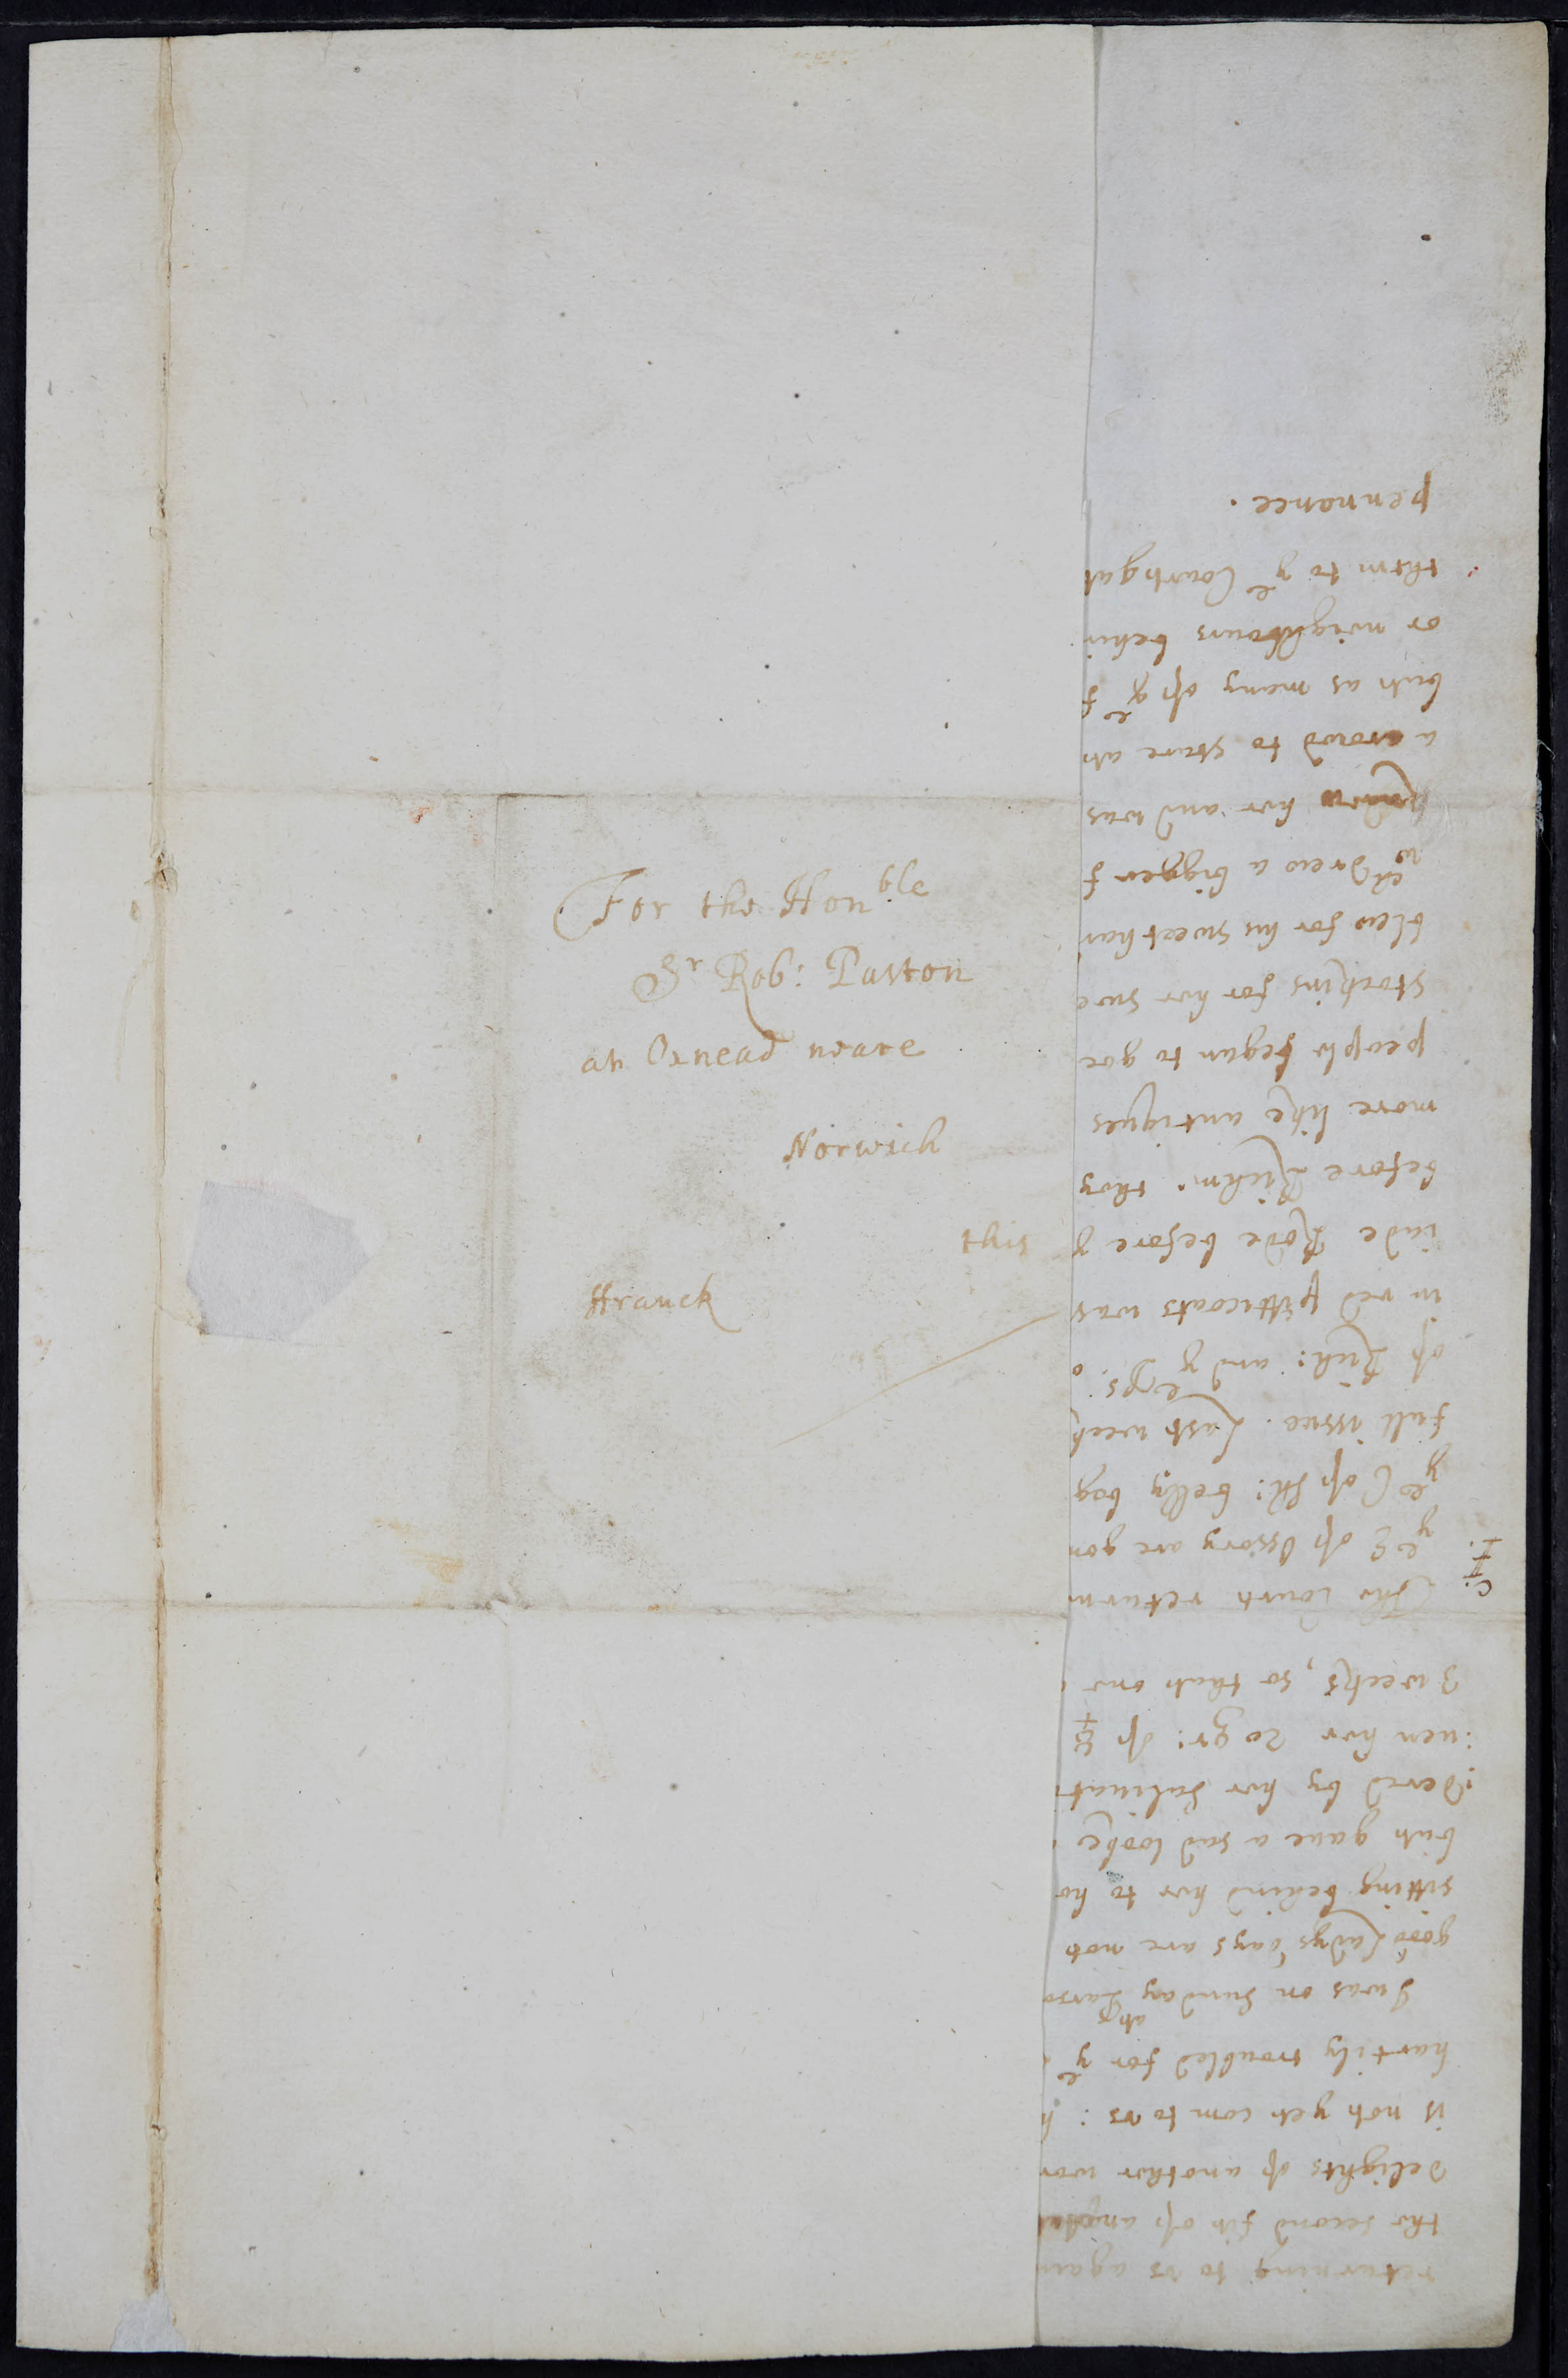 For the Hon^ble
S^r Rob: Paston
att Oxnead neare
Norwich
this
ffranck
returning to vs again
the second fitt of
delights of another wor
is nott yett com to vs : h
hartily troubled for y^e
I was on Sunday att
good Ladys says are nott
sitting behind her to ho
butt gaue a sad looke
:dered by her Saliuat
:uen her 20 gr: of ☿
3 weeks, so thatt one
The Courtt return
y^e E of Ossory are gon
y^e C of belly bag
full issue. Last week
of Rich: and y^e
in red petticoats was
iade Rode before y
before Richm: they
more like antiques
people began to goe
stockins for her swe
blew for his sweethar
w^ch drew a bigger f
knew her and was
a crowd to stare att
butt as many of y^e f
or neighbours behin
them to y^e Courtgat
pennance.